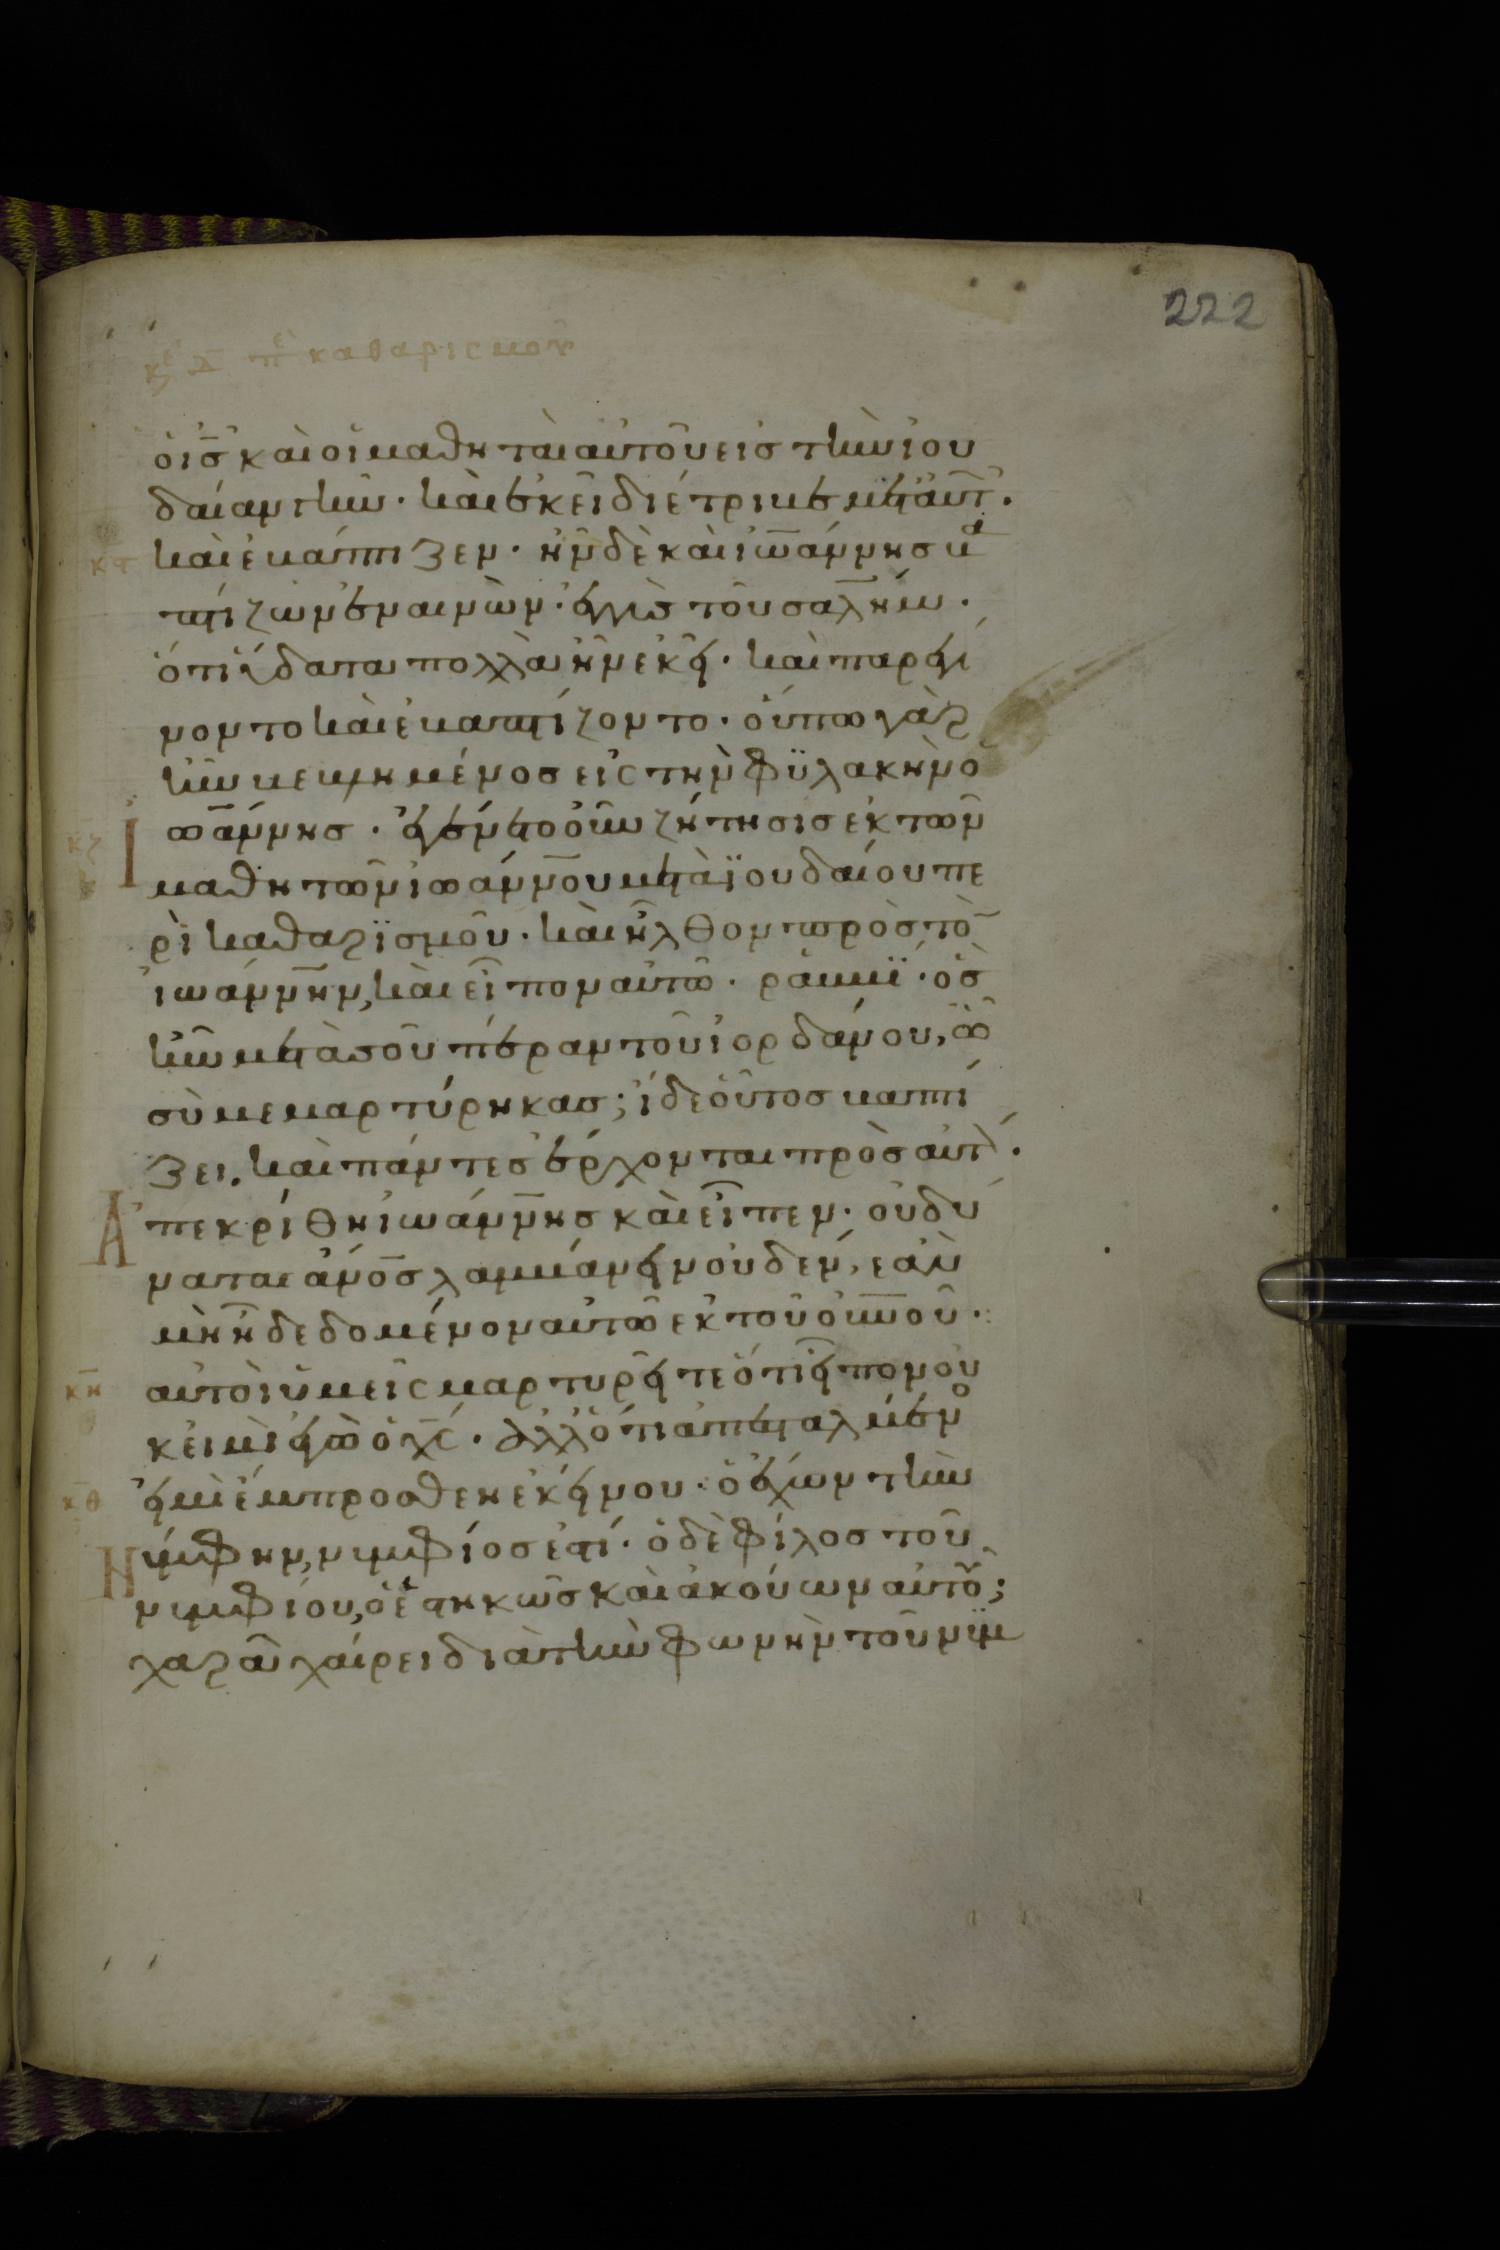 222
κεφ δ πε καθαρισμοῦ
ὁ ις̅ καὶ οἱ μαθηταὶ αὐτοῦ εἰς τὴν ἰου
δαίαν γῆν· καὶ ἐκεῖ διέτριβε μετ' αὐτ.
κϛ καὶ ἐβάπτιζεν· ἦν δὲ καὶ ἰω̅άννης βα
πτίζων ἐν αἰνὼν· ἐγγὺς τοῦ σαλ̅ήμ·
ὅτι ὕδατα πολλὰ ἦν ἐκεῖ· καὶ παρεγί
νοντο καὶ ἐβαπτίζοντο· οὔπω γὰρ
ἦν βεβλημένος εἰς τὴν φϋλακὴν ὁ
κζ Ἰωάννης· ἐγένετο οὖν ζήτησις ἐκ τῶν
μαθητῶν ἰωάννου μετὰ ϊουδαίου πε
ρὶ καθαρϊσμοῦ· καὶ ἦλθον πρὸς τὸ̅
ἰωάννην, καὶ εἶπον αὐτῶ· ῥαββΐ· ὃς
ἦν μετὰ σοῦ πέραν τοῦ ἰορδάνου, ὧ
σὺ μεμαρτύρηκας; ἴδε οὗτος βαπτί
ζει. καὶ πάντες ἔρχονται πρὸς αὐτ.
Ἀπεκρίθη ἰωάννης καὶ εἶπεν· οὐ δύ
ναται ἀνο̅σ λαμβάνειν οὐδέν, ἐὰν
μὴ ἦ δεδομένον αὐτῶ ἐκ τοῦ ου̅νου·
κη αὐτοὶ ὑμεῖς μαρτυρεῖτε ὅτι εἶπον οὐ
κ εἰμὶ ἐγὼ ὁ χς̅· ἀλλ' ὅτι ἀπεσταλμένο
κθ εἰμὶ ἔμπροσθεν ἐκείνου· ὁ ἔχων τὴν
Νύμφην, νυμφίος ἐστί· ὁ δὲ φίλος τοῦ
νυμφίου, ὁ ἑστηκὼς καὶ ἀκούων αὐτοῦ;
χαρᾶ χαίρει διὰ τὴν φωνὴν τοῦ νϋμ